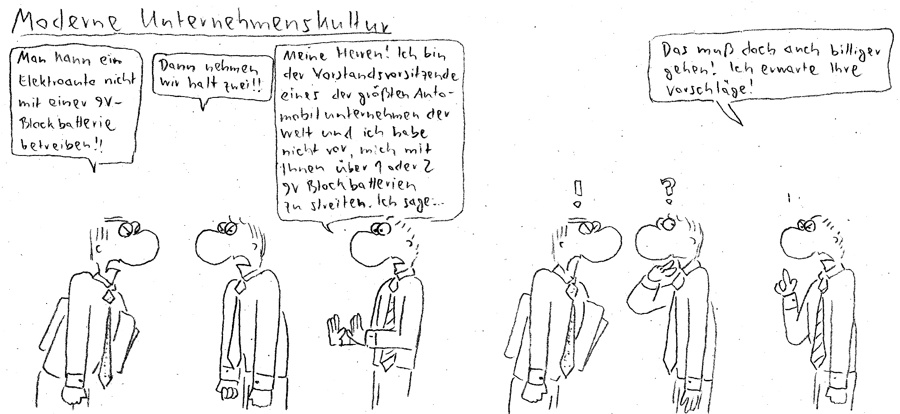 Moderne Unternehmenskultur
Man kann ein
Elektroauto nicht
mit einer 9V-
Blockbatterie
betreiben!!
Dann nehmen
wir halt zwei!!
Meine Herren! Ich bin
der Vorstandsvorsitzende
eines der größten Auto-
mobilunternehmen der
Welt und ich habe
nicht vor, mich mit
Ihnen über 1 oder 2
9V Blockbatterien
zu streiten. Ich sage...
Das muß doch auch billiger
gehen! Ich erwarte Ihre
Vorschläge!
!
?